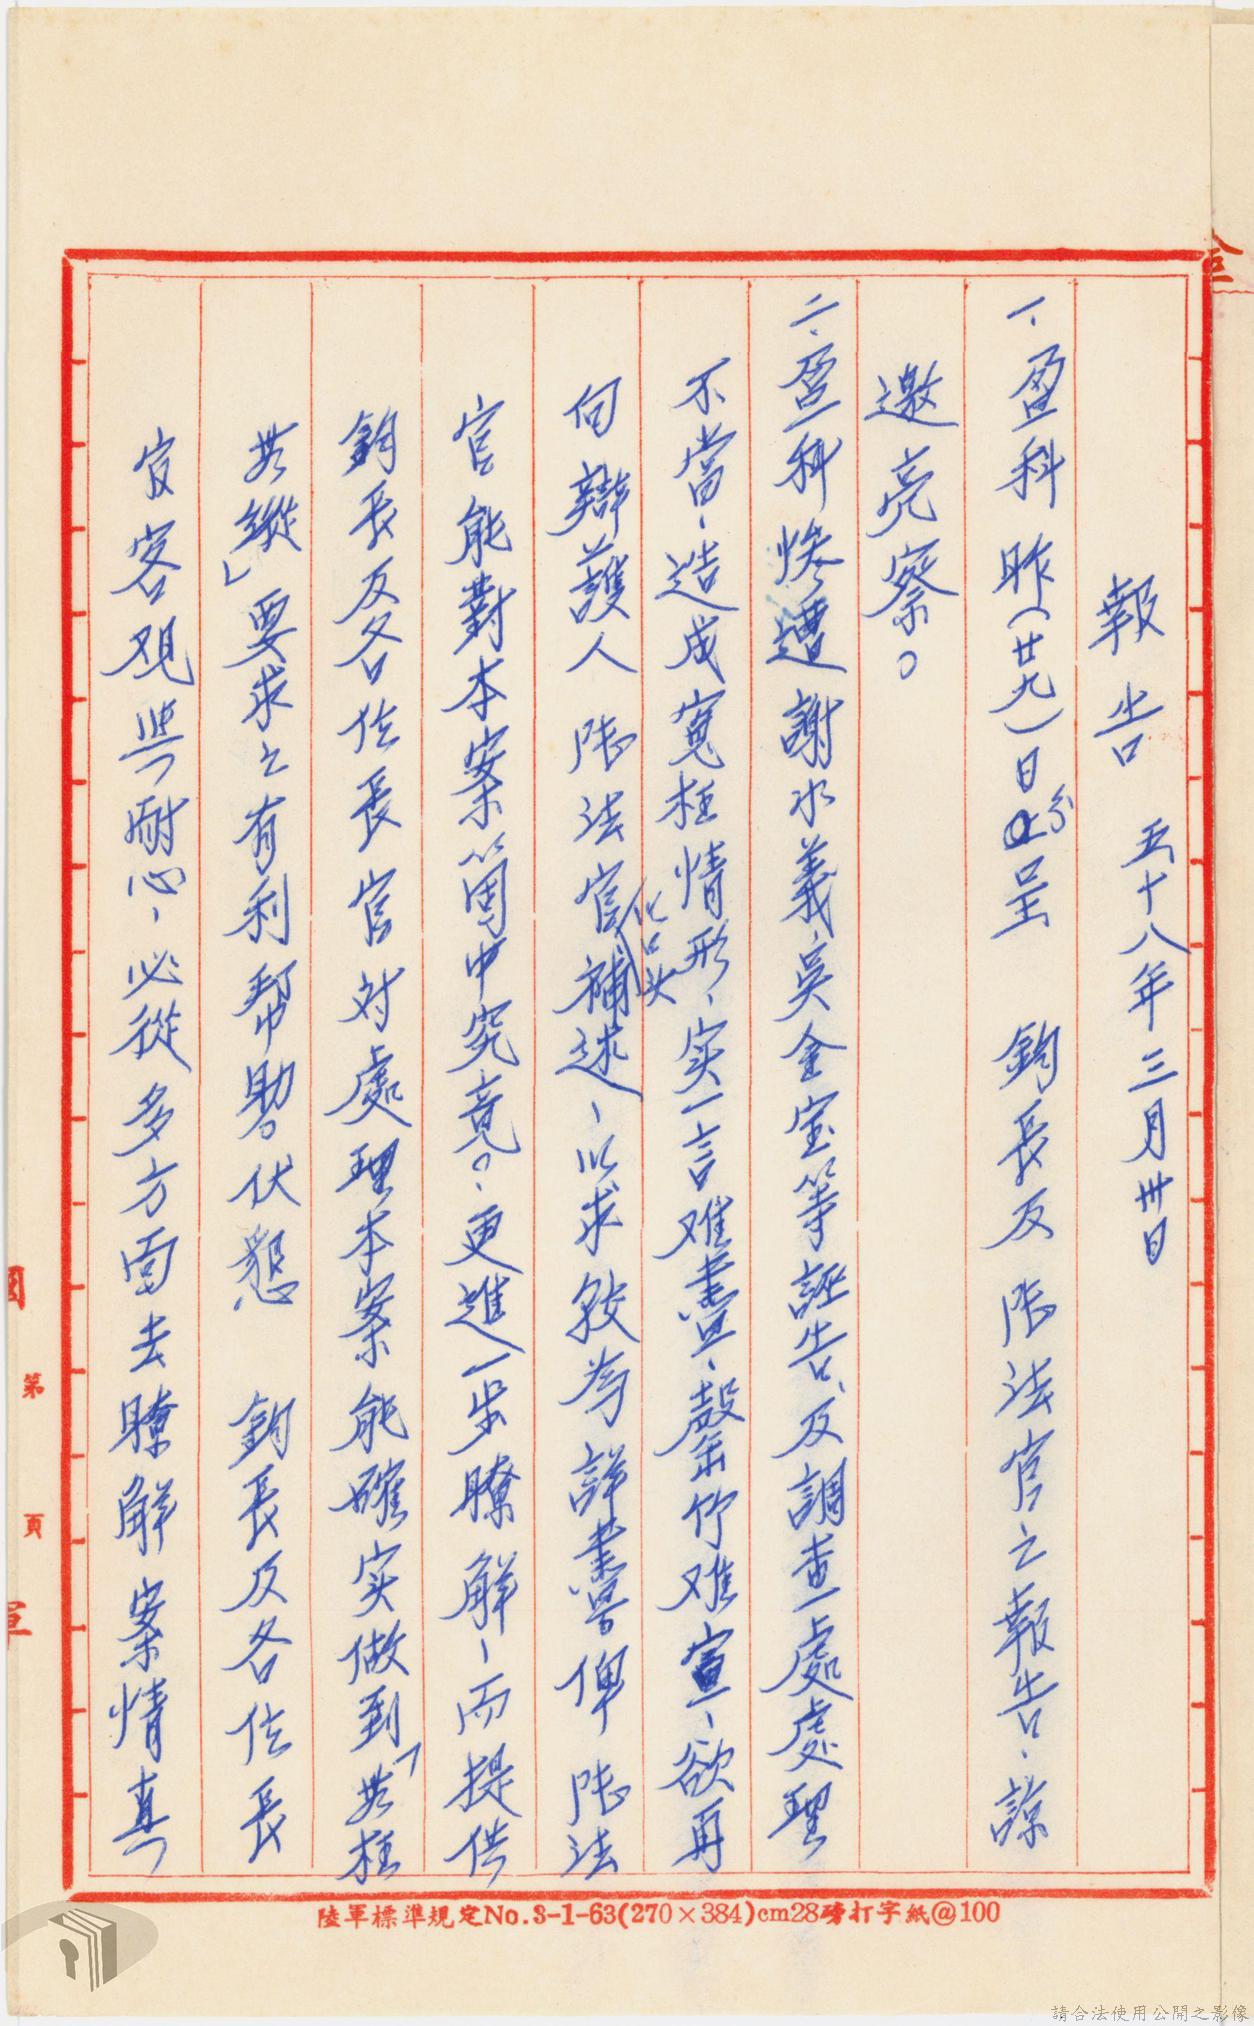 報告 五十八年三月卅日
一、盈科昨(廿九)日分呈 鈞長及 張法官之報告、諒
邀亮察。
二、盈科慘遭謝水義、吳金宝等誣告、及調查處處理
不當、造成冤枉情形、实一言难盡、罄竹难宣、欲再
向辯護人 張法官作口头補述、以求較為詳盡俾張法
官能對本案箇中究竟。、更進一步瞭解、而提供
鈞長及各位長官対處理本案能確实做到「毋枉
毋縱」要求之有利幫助。伏懇 鈞長及各位長
官客观與耐心、必從多方面去瞭解案情真
陸軍標準規定No.3-1-63(270×384)cm28磅打字紙@100
第 頁
請合法使用公開之影像